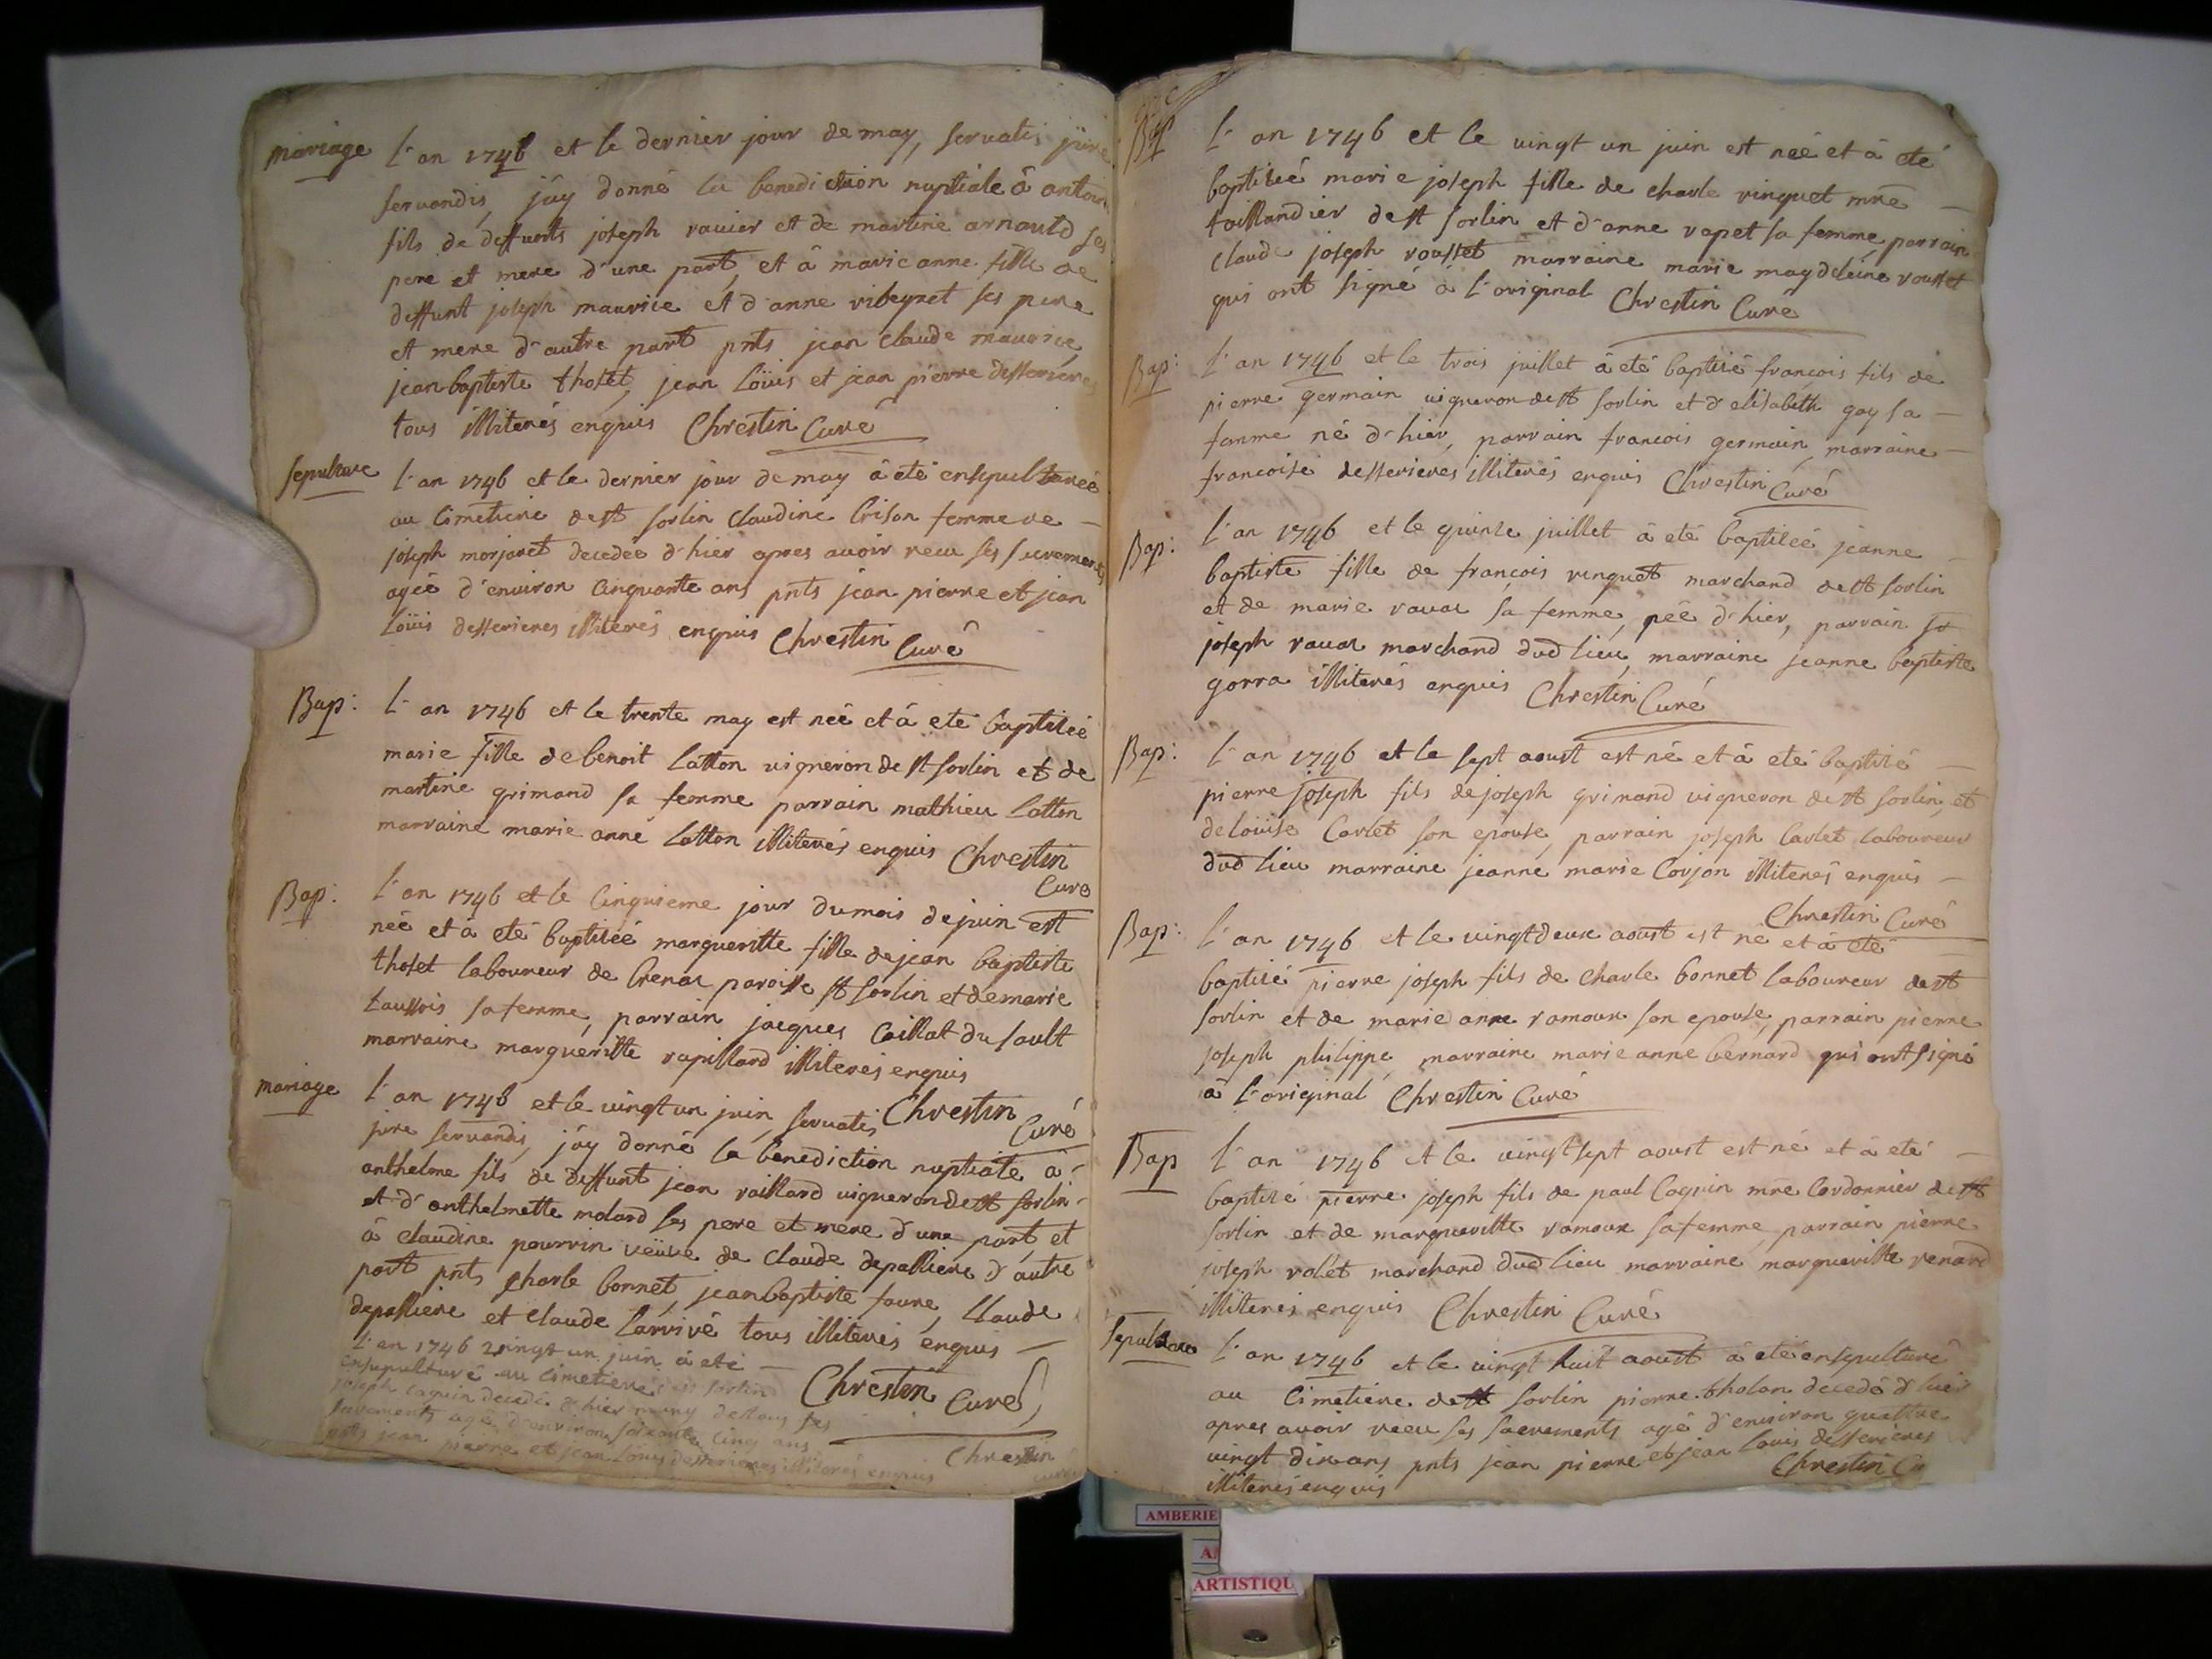 mariage L'an 1746 et le dernier jour de may, servatis jure
servandis, j'ay donné la benediction nuptiale â antoin
fils de deffunts joseph ravier et de martine arnauld ses
pere et mere d'une part, et â marie anne fille de
deffunt joseph maurice et d'anne ribeyret ses pere
et mere d'autre part pnts jean claude maurice,
jean baptiste thoset, jean Loüis et jean pierre desserieres
tous illiterés enquis Chrestin Curé
sepulture L'an 1746 et le dernier jour de may â eté ensepulturée
au Cimetiere de st sorlin Claudine Crison femme de
joseph morjaret decedée d'hier apres avoir recu ses sacrements
agée d'environ Cinquante ans pnts jean pierre et jean
Loüis desserieres illiterés enquis Chrestin Curé
Bap: L'an 1746 et le trente may est née et â eté baptisée
marie fille de benoit Latton vigneron de st sorlin et de
martine grimand sa femme parrain mathieu Latton
marraine marie anne Latton illiterés enquis Chrestin
Curé
Bap: L'an 1746 et le Cinquieme jour du mois de juin est
née et â eté baptisée margueritte fille de jean baptiste
thoset laboureur de Chenal paroisse st sorlin et de marie
taussois sa femme, parrain jacques Caillat du sault
marraine margueritte rapillard illiterés enquis
Chrestin Curé
mariage L'an 1746 et le vingt un juin, servatis
jure servandis, j'ay donné la benediction nuptiale â
anthelme fils de deffunt jean raillard vigneron de st sorlin
et d'anthelmette molard ses pere et mere d'une part, et
â claudine pourrin veüve de Claude depalliere d'autre
part pnts Charle bonnet, jean baptiste faure, Claude
depalliere et Claude Larrivé tous illiterés enquis
Chrestin Curé
L'an 1746 vingt un juin â eté
ensepulturé au Cimetiere de st sorlin
joseph Coquin decedé d'hier muny de tous ses
sacrements agé d'environ soixante Cinq ans
pnts jean pierre et jean Loüis desserieres illiterés enquis
Chrestin
Curé
Bap L'an 1746 et le vingt un juin est née et â eté
baptisée marie joseph fille de charle vinquet mre
taillandier de st sorlin et d'anne vapet sa femme, parrain
Claude joseph rousset marraine marie magdeleine rousset
qui ont signé â l'original Chrestin Curé
Bap: L'an 1746 et le trois juillet â eté baptisé françois fils de
pierre germain vigneron de st sorlin et d'elisabeth gay sa
femme né d'hier, parrain francois germain, marraine
francoise desserieres illiterés enquis Chrestin Curé
Bap: L'an 1746 et le quinze juillet â eté baptisée jeanne
baptiste fille de françois vinquet marchand de st sorlin
et de marie ravat sa femme, née d'hier, parrain
joseph ravat marchand dud lieu, marraine jeanne baptiste
gorra illiterés enquis Chrestin Curé
Bap: L'an 1746 et le sept aoust est né et â eté baptisé
pierre joseph fils de joseph grimand vigneron de st sorlin, et
de loüise Carlet son epouse, parrain joseph Carlet laboureur
dud lieu marraine jeanne marie Corjon illiterés enquis
Chrestin Curé
Bap: L'an 1746 et le vingt deux aoust est né et â eté
baptisé pierre joseph fils de Charle bonnet laboureur de st
sorlin et de marie anne ramoux son epouse, parrain pierre
joseph philippe, marraine marie anne bernard qui ont signé
â l'original Chrestin Curé
Bap L'an 1746 et le vingt sept aoust est né et â eté
baptisé pierre joseph fils de paul Coquin mre Cordonnier de st
sorlin et de margueritte ramoux sa femme, parrain pierre
joseph rolet marchand dud lieu marraine margueritte renard
illiterés enquis Chrestin Curé
Sepulture L'an 1746 et le vingt huit aoust â eté ensepulturé
au Cimetiere de st sorlin pierre tholon decedé d'hier
apres avoir recu ses sacrements agé d'environ quattre
vingt dix ans pnts jean pierre et jean Louis desserieres
illiterés enquis Chrestin Cu
AMBERIE
A
ARTISTIQU